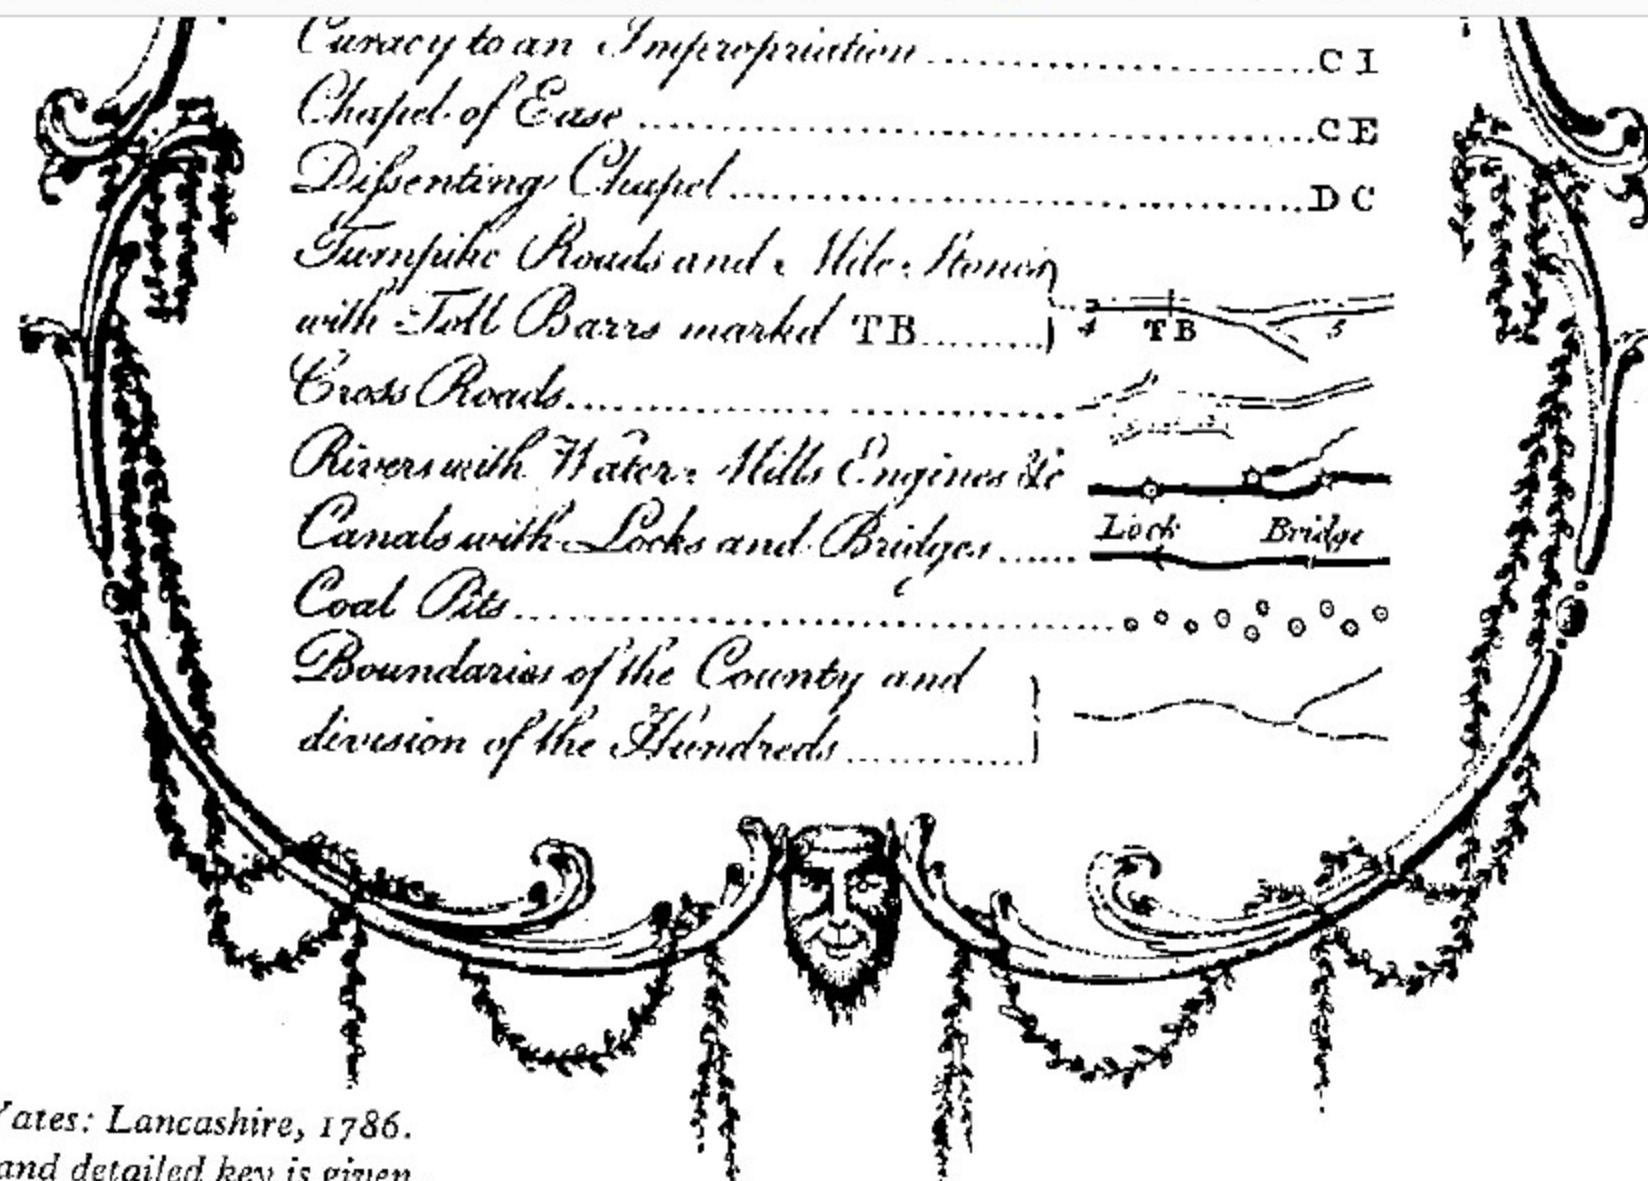 Curacy to an Impropriation C I
Chapel of Ease C E
Dissenting Chapel D C
Turnpike Roads and Mile Stones
with Toll Barrs markd TB 4 TB 5
Cross Roads
Rivers with Water Mills Engines &c
Canals with Locks and Bridges Lock Bridge
Coal Pits
Boundaries of the County and
division of the Hundreds
Yates: Lancashire, 1786.
and detailed key is given